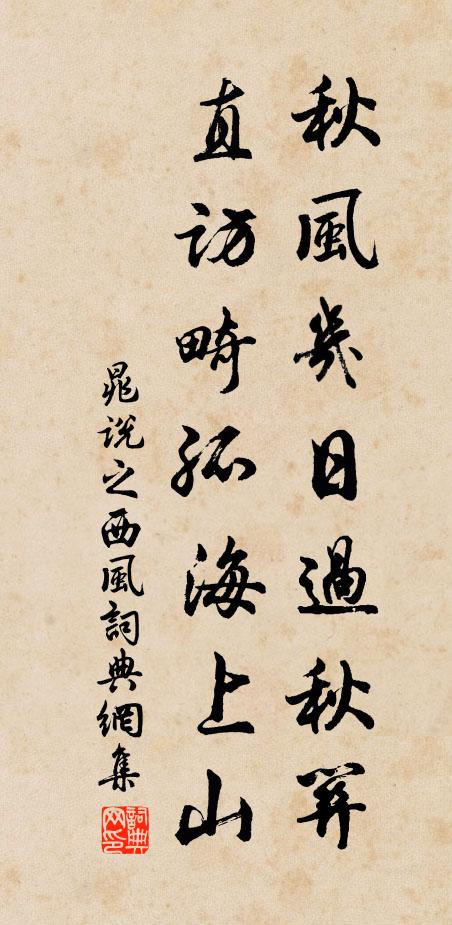 秋風幾日過秋關
直訪畸孤海上山
晁說之西風詞典網集
詞典網印